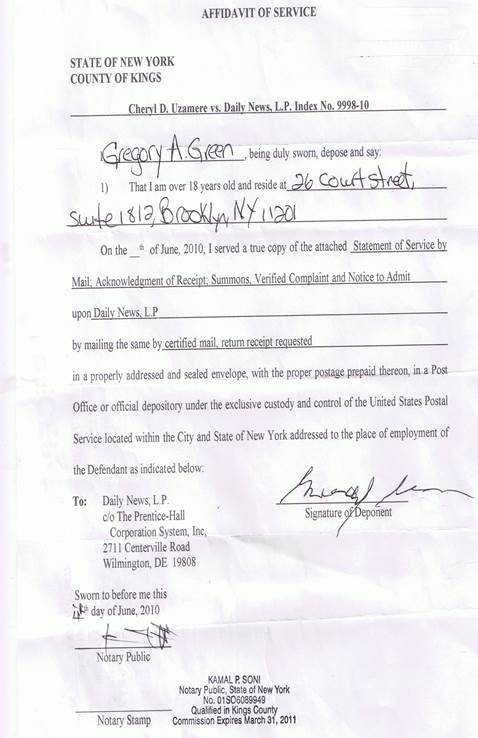 AFFIDAVIT OF SERVICE
STATE OF NEW YORK
COUNTY OF KINGS
Cheryl D. Uzamere vs. Daily News, L.P. Index No. 9998-10
I, Gregory A. Green, being duly sworn, depose and say:
1) That I am over 18 years old and reside at 26 Court Street,
Suite 1812, Brooklyn, NY 11201
On the __th of June, 2010, I served a true copy of the attached Statement of Service by
Mail; Acknowledgment of Receipt; Summons, Verified Complaint and Notice to Admit
upon Daily News, L.P
by mailing the same by certified mail, return receipt requested
in a properly addressed and sealed envelope, with the proper postage prepaid thereon, in a Post
Office or official depository under the exclusive custody and control of the United States Postal
Service located within the City and State of New York addressed to the place of employment of
the Defendant as indicated below:
To: Daily News, L.P.
c/o The Prentice-Hall
Corporation System, Inc.
2711 Centerville Road
Wilmington, DE 19808
Signature of Deponent
Sworn to before me this
th day of June, 2010
Notary Public
KAMAL P. SONI
Notary Public, State of New York
No. 01SO6089949
Qualified in Kings County
Commission Expires March 31, 2011
Notary Stamp